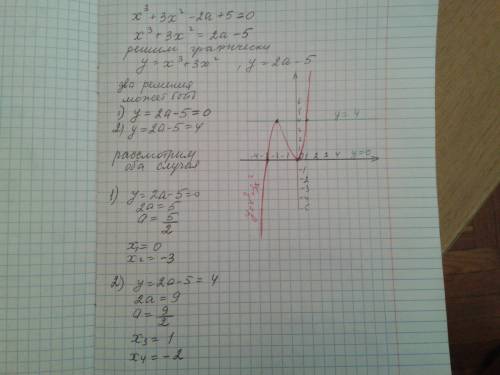 x³+3x²-2a+5=0
x³+3x²=2a-5
решим графически
y=x³+3x² , y=2a-5
два решения
может быть
1) y=2a-5=0
2) y=2a-5=4
рассмотрим
оба случая
1) y=2a-5=0
2a=5
a=5/2
x₁=0
x₂=-3
2) y=2a-5=4
2a=9
a=9/2
x₃=1
x₄=-2
y=4
y=0